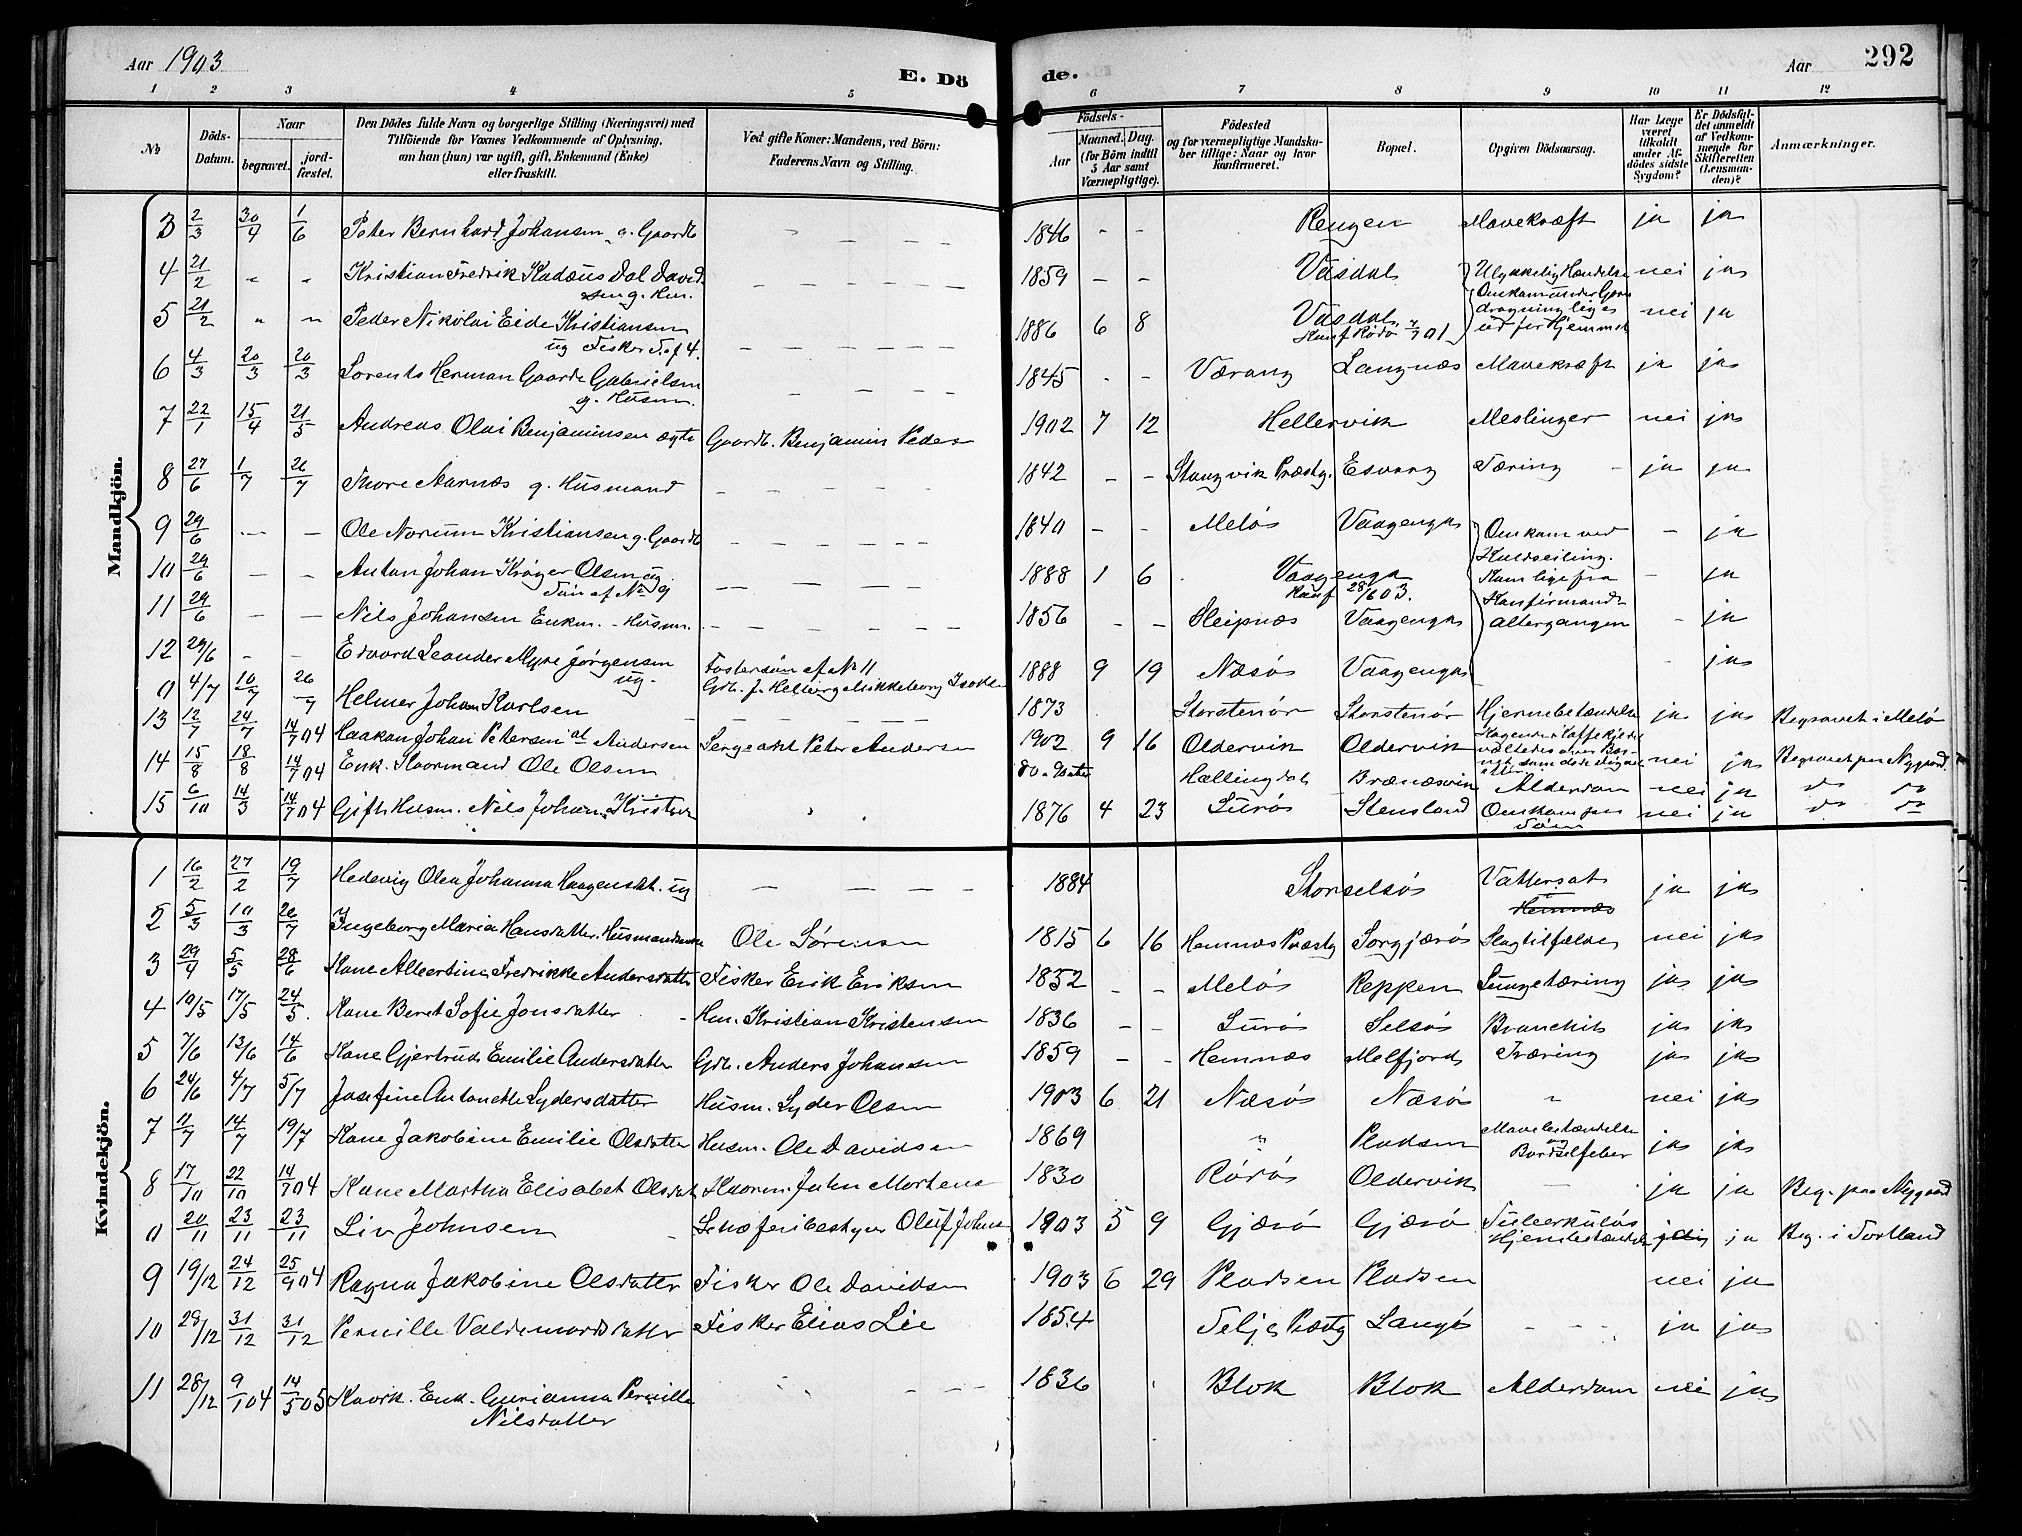 Aar 1903
E. Dö
de.
Aar
292
1 2 3 4 5 6 7 8 9 10 11 12
No
Döds-Datum.
Naar
begravet.
jord-fæstet.
Den Dödes fulde Navn og borgerlige Stilling (Næringsvei) med
Tilföiende for Voxnes Vedkommende af Oplysning,
om han (hun) var ugift, gift, Enkemand (Enke)
eller fraskilt.
Ved gifte Koner: Mandens, ved Börn:
Faderens Navn og Stilling.
Födsels-
Aar
Maaned. Dag.
(for Börn indtil
5 Aar samt
Værnepligtige).
Födested
og for værnepligtige Mandska-
ber tillige: Naar og hvor
konfirmeret.
Bopæl.
Opgiven Dödsaarsag.
Har Læge
været
tilkaldt
under Af-
dödes sidste
Sygdom?
Er Dödsfal-
det anmeldt
af Vedkom-
mende for
Skifteretten
(Lensman-
den)?
Anmærkninger.
Mandkjön.
3 2/3 30/4 1/6 Peter Bernhard Johansen g. Gaardb. 1846 - - Rengen Mavekræft ja ja
4 21/2 " " Kristian Fredrik Kadæus Dal David
sen g. Hus. 1859 - - Vasdal Ulykkelig Hændelse nei ja
5 21/2 " " Peder Nikolai Eide Kristiansen
ug Fisker S. af 4. 1886 6 8 Vasdal
Konf Rødø 7/7 01 Omkom under Garn
dragning liges
ud for Hjemmet nei ja
6 4/3 20/3 20/3 Lorents Herman Gaarde Gabrielsen
g. Husm. 1845 - - Værang Langnæs Mavekræft ja ja
7 22/1 15/4 21/5 Andreas Olai Benjaminsen ægte Gaardb. Benjamin Peders 1902 7 12 Hellervik Meslinger nei ja
8 27/6 1/7 26/7 Thore Aarnæs g. Husmand 1842 - - Stangvik Præstg. Esvarg Tæring ja ja
9 29/6 - - Ole Norum Kristiansen g. Gaardb 1840 - - Melø Vaagenga Omkom ved - ja
10 29/6 - - Anton Johan Krøger Olsen ug.
Søn af No 9 1888 1 6 Vaagenga
Konf 28/6 03. Kuldseiling.
Kom lige fra - ja
11 29/6 - - Nils Johansen Enkm. - Husm. 1856 - - Sleipnæs Vaagenga Konfirmand-
altergangen - ja
12 29/6 - - Edvard Leander Myre Jørgensen
ug. Fostersøn af No 11 1888 9 19 Næsø Vaagenga - ja
0 4/7 10/7 26/7 Helmer Johan Karlsen 1873 Storstenør Storstenør Hjernebetændelse ja ja Begravet i Melø
13 12/7 24/7 14/7 04 Haakon Johan Petersen Andersen Sergeant Peter Andersen 1902 9 16 Oldervik Oldervik nei ja Begravet paa Nygaard
14 15/8 18/8 14/7 04 Enk. Ole Olsen Hallingdal Alderdom nei ja do do
15 6/10 14/3 14/7 04 Gift Husm. Nils Johan 1876 4 23 Lurø Stensland Omkom paa
Søen nei ja do do
Kvindekjön.
1 16/2 27/2 19/7 Hedevig Olea Johanna Haagensdt. ug 1884 Storselsø Vattersot ja ja
2 5/3 10/3 26/7 Ingeborg Maria Hansdatter. Husmandsenke Ole Sørensen 1815 6 16 Hemnæs Præstg Sørgjærø Slagtilfælde nei ja
3 29/4 5/5 28/6 Kone Albertine Fredrikke Andersdatter Fisker Erik Eriksen 1832 - - Melø Reppen Lungetæring ja ja
4 10/5 17/5 24/5 Kone Beret Sofie Jonsdatter Hm. Kristian Kristensen 1836 - - Lurø Selsø Bronchit ja ja
5 7/6 13/6 14/6 Kone Gjertrud Emilie Andersdatter Gdb. Anders Johansen 1859 - - Hemnæs Melfjord Tæring ja ja
6 24/6 4/7 5/7 Josefine Antonette Lydersdatter Husm. Lyder Olsen 1903 6 21 Næsø Næsø " nei ja
7 11/7 14/7 19/7 Kone Jakobine Emilie Olsdatter Husm. Ole Davidsen 1869 " Pladsen Mavebetændelse
og
Barselfeber ja ja
8 17/10 22/10 14/7 04 Kone Martha Elisabet Olsdat John Mortens 1830 Rørøs Oldervik - ja ja Beg. paa Nygaard
0 20/11 23/11 23/11 Liv Johnsen Oluf Johns 1903 5 9 Gjærø Gjærø Tuberkuløs
Hjernebetændelse ja Beg. i Tortland
9 19/12 24/12 25/9 04 Ragna Jakobine Olsdatter Fisker Ole Davidsen 1903 6 29 Pladsen Pladsen nei ja
10 28/12 31/12 31/12 Pernille Valdemardsdatter Fisker Elias Lie 1854 Selje Præstg Langø - - - ja ja
11 28/12 9/1 04 14/5 05 Kaark. Enk. Gurianna Pernille
Nilsdatter 1836 Blok Blok Alderdom nei ja